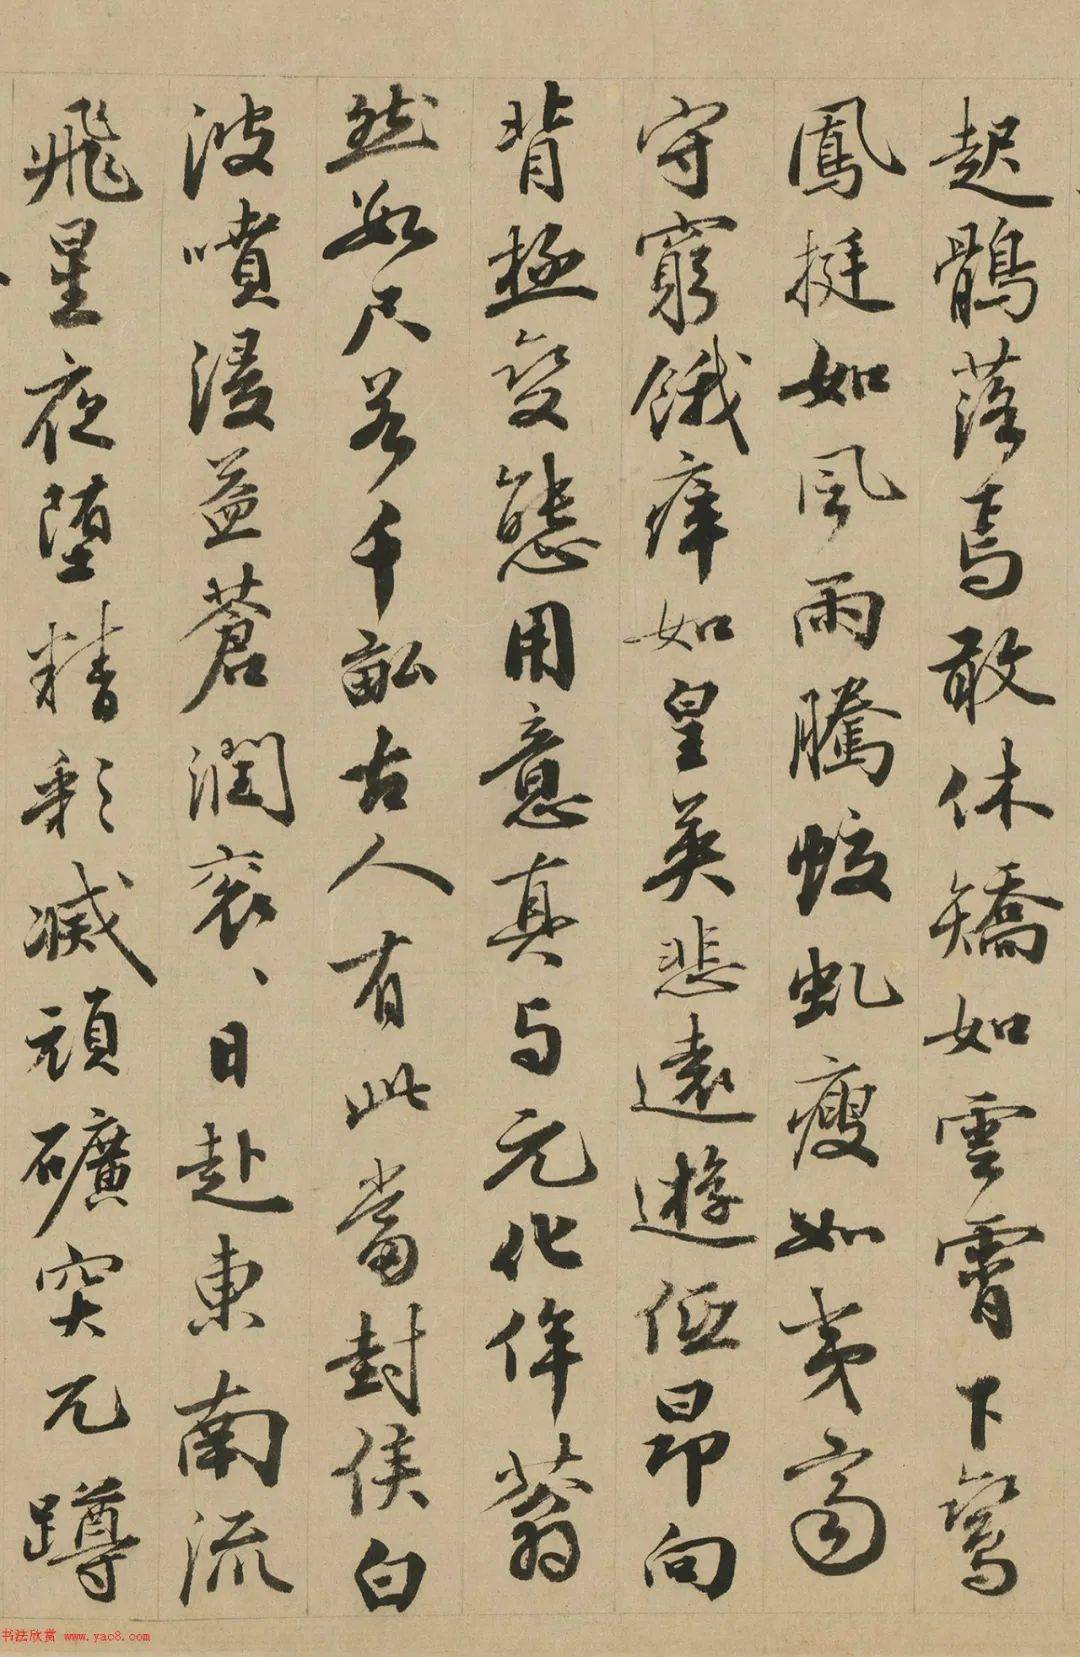 起鶻落焉敢休矯如雲霄下鸞
鳳挺如風雨騰蛟虬瘦如夷齊
守窮餓癢如皇英悲遠遊低昂向
背極變態用意真与元化侔蓊
然數尺若千畝古人有此當封侯白
波噴浸益蒼潤衮、日赴東南流
飛星夜堕精彩滅頑礦突兀蹲
书法欣赏 www.yac8.com